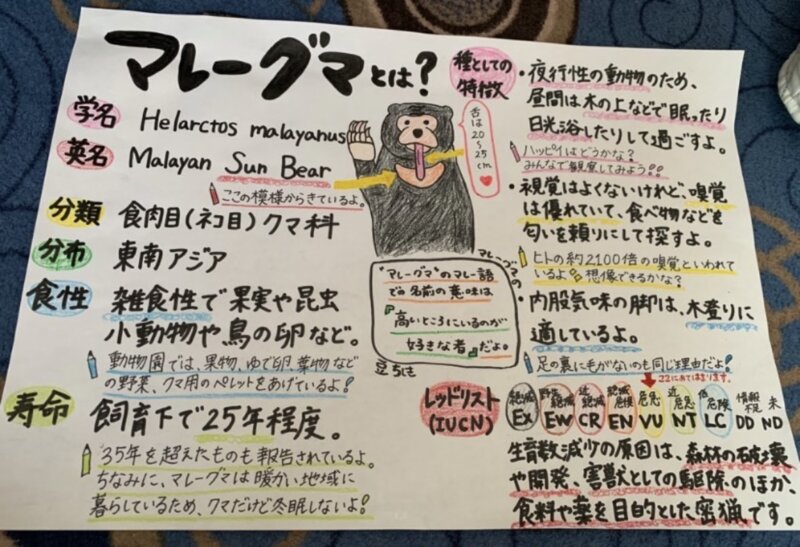 マレーグマとは?
学名 Helarctos malayanus
英名 Malayan Sun Bear
ここの模様からきているよ。
分類 食肉目(ネコ目)クマ科
分布 東南アジア
食性 雑食性で果実や昆虫
小動物や鳥の卵など。
動物園では、果物、ゆで卵、葉物など
の野菜、クマ用のペレットをあげているよ!
寿命 飼育下で25年程度。
35年を超えたものも報告されているよ。
ちなみに、マレーグマは暖かい地域に
暮らしているため、クマだけど冬眠しないよ!
舌は
20〜
25
cm
マレーグマの
"マレーグマ"のマレー語
での名前の意味は
『高いところにいるのが
好きな者』だよ。
豆ちしき
種としての
特徴
・夜行性の動物のため、
昼間は木の上などで眠ったり
日光浴したりして過ごすよ。
ハッピイはどうかな?
みんなで観察してみよう!!
・視覚はよくないけれど、嗅覚
は優れていて、食べ物などを
匂いを頼りにして探すよ。
ヒトの約2100倍の嗅覚といわれて
いるよ。想像できるかな?
・内股気味の脚は、木登りに
適しているよ。
足の裏に毛がないのも同じ理由だよ!
ココにあてはまります。
レッドリスト
(IUCN)
絶滅 EX
野生絶滅 EW
近絶滅 CR
絶滅危機 EN
危急 VU
近危急 NT
低危険 LC
情報不足 DD
未 ND
生育数減少の原因は、森林の破壊
や開発、害獣としての駆除のほか、
食料や薬を目的とした密猟です。